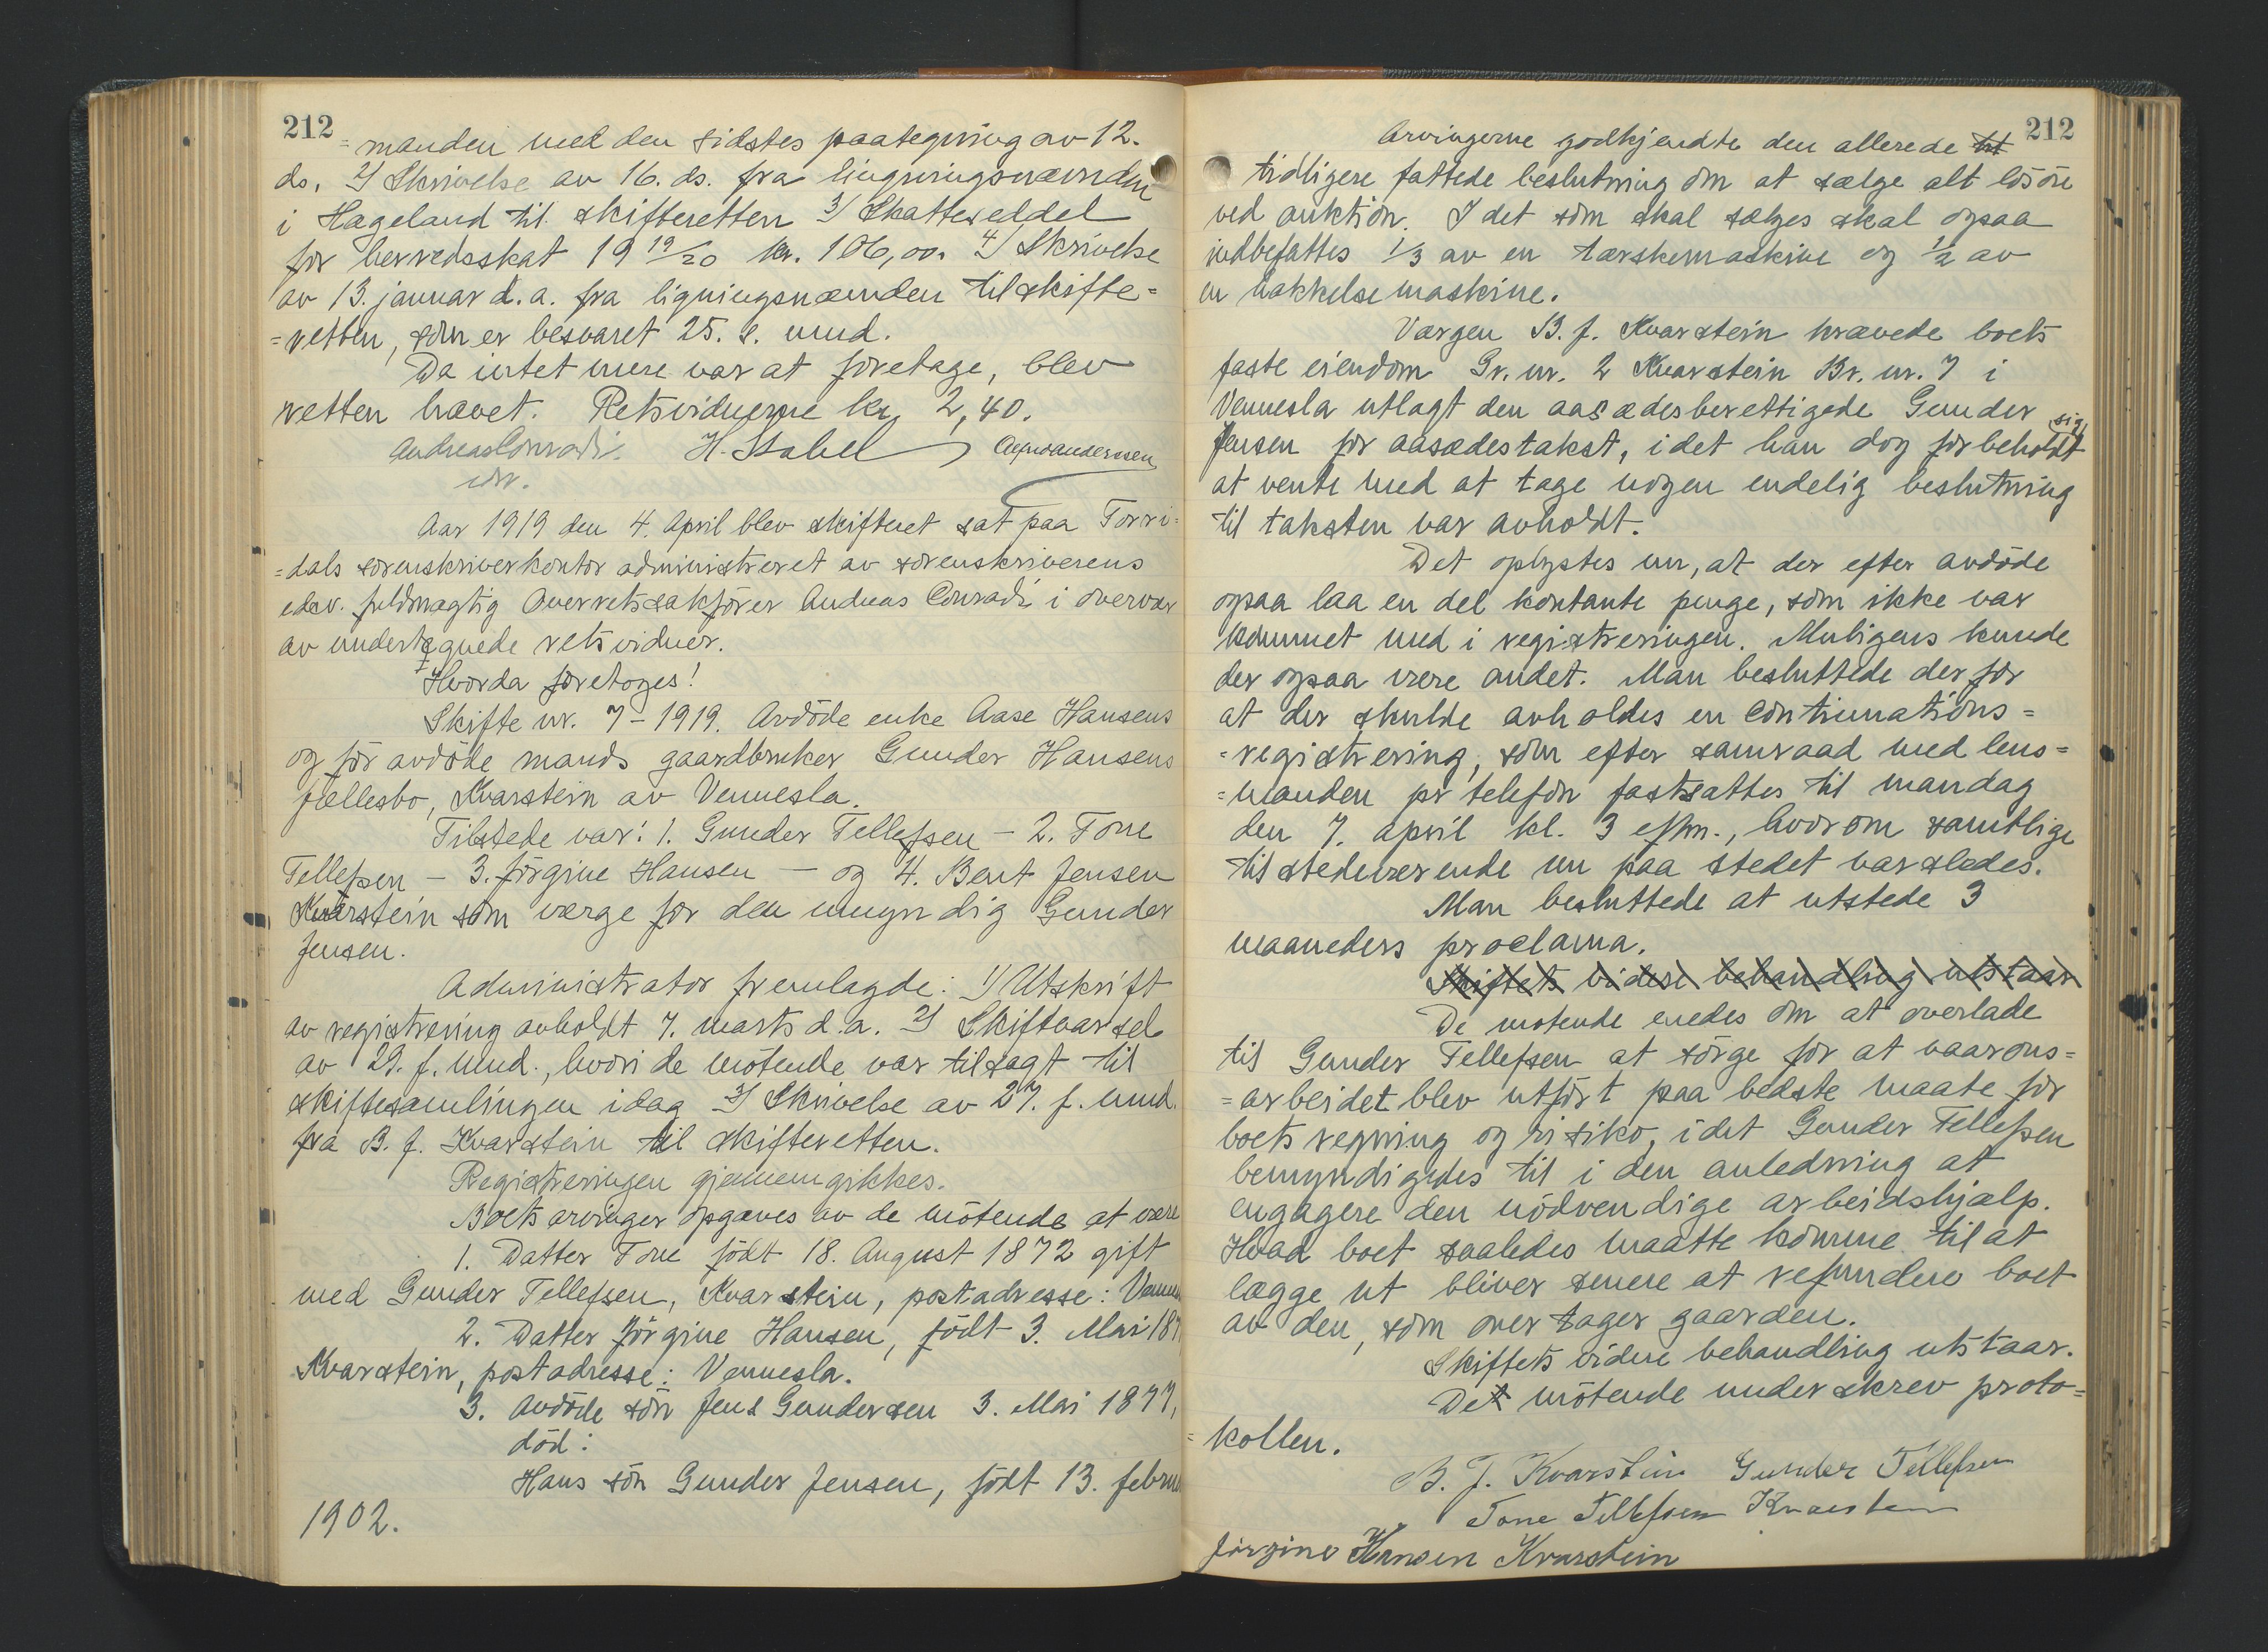 212
=manden med den sidstes paategning av 12.
ds. 2/ Skrivelse av 16. ds. fra lingningsnævnden
i Hægeland til skifteretten 3/ Skatteseddel
for herredsskat 19 19/20 kr. 106,00. 4/ Skrivelse
av 13. januar d.a. fra ligningsnævnden til skifte=
=retten, som er besvaret 25. s. mnd.
Da intet mere var at foretage, blev
retten hævet. Retsvidnerne kr. 2,40.
Andreas Conradi. H. Stabel
Aar 1919 den 4. April blev skifteret sat paa Torri=
=dals sorenskriverkontor administreret av sorenskriverens
edsv. fuldmægtig Overretssakfører Andreas Conradi i overvær
av undertegnede retsvidner.
Hvorda foretoges!
Skifte nr. 7-1919. Avdöde enke Aase Hansens
og før avdöde mands gaardbruker Gunder Hansens
fællesbo, Kvarstein av Vennesla.
Tilstede var: 1. Gunder Tellefsen - 2. Tone
Tellefsen - 3. Jörgine Hansen - og 4. Bent Jensen
Kvarstein som værge for den umyndig Gunder
Jensen.
Administrator fremlagde: 1/ Utskrift
av registrering avholdt 7. marts d.a. 2/ Skiftvarsel
av 29. f. mnd., hvori de mötende var tilsagt til
skiftesamlingen idag 3/ Skrivelse av 27. f. mnd.
fra B. J. Kvarstein til skifteretten.
Registreringen gjennemgikkes.
Boets arvinger opgaves av de mötende at være
1. Datter Tone födt 18. August 1872 gift
med Gunder Tellefsen, Kvarstein, postadresse: Venne
2. Datter Jörgine Hansen, födt 3. Mai 187
Kvarstein, postadresse: Vennesla.
3. Avdöde sön Jens Gundersen 3. Mai 1877,
död:
Hans sön Gunder Jensen, födt 13. febru
1902.
212
Arvingerne godkjendte den allerede
tidligere fattede beslutning om at sælge alt lösöre
ved auktion. I det som skal sælges skal ogsaa
indbefattes 1/3 av en tærskemaskine og 1/2 av
en hakkelsemaskine.
Værgen B. J. Kvarstein krævede boets
faste eiendom Gr. nr. 2 Kvarstein Br. nr. 7 i
Vennesla utlagt den aasædesberettigede Gunder
Jensen for aasædestakst, idet han dog forbeholdt sig
at vente med at tage nogen endelig beslutning
til taksten var avholdt.
Det oplystes nu, at der efter avdöde
ogsaa laa en del kontante penge, som ikke var
kommet med i registreringen. Muligens kunde
der ogsaa være andet. Man besluttede derfor
at der skulde avholdes en Continuations=
=registrering, som efter samraad med lens=
=manden pr telefon fastsattes til mandag
den 7. april kl. 3 eftm., hvorom samtlige
tilstedeværende nu paa stedet varsledes.
Man besluttede at utstede 3
maaneders proclama.
Skiftets videre behandling utstaar
De motende enedes om at overlade
til Gunder Tellefsen at sörge for at vaarons=
=arbeidet blev utfört paa bedste maate for
boets regning og risiko, idet Gunder Tellefsen
bemyndigedes til i den anledning at
engagere den nödvendige arbeidshjælp.
Hvad boet saaledes maatte komme til at
lægge ut bliver senere at refundere boet
av den, som overtager gaarden.
Skiftets videre behandling utstaar.
De mötende underskrev proto=
=kollen.
B. J. Kvarstein Gunder Tellefsen
Tone Tellefsen Kvarstein
Jörgine Hansen Kvarstein